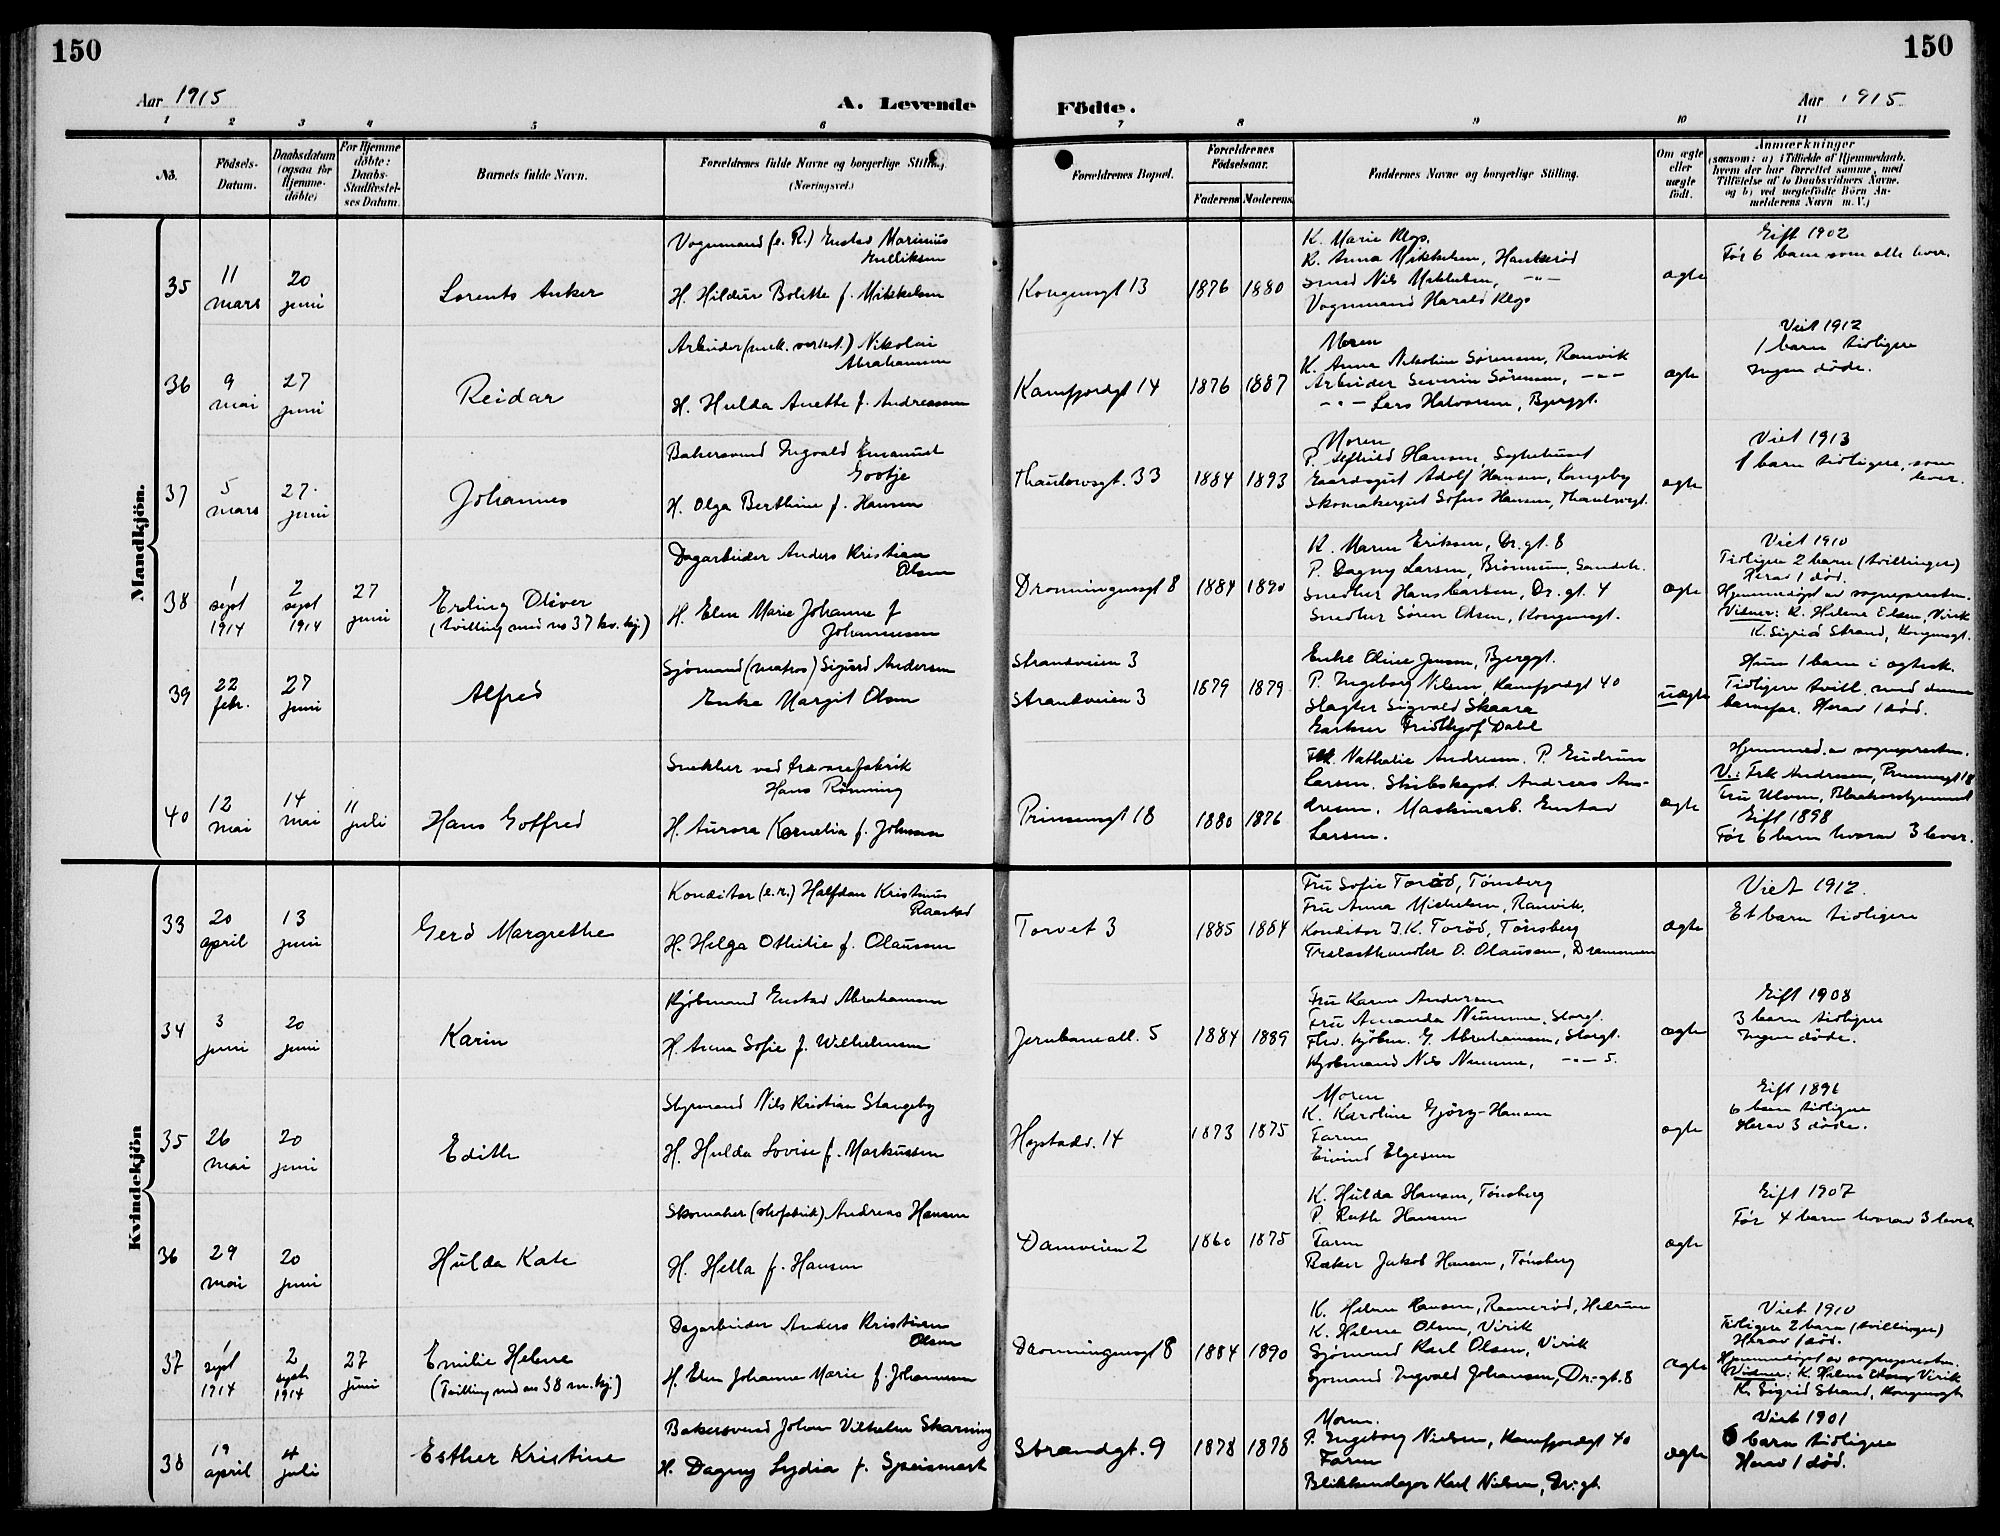 150
150
Aar 1915
A. Levende
Födte.
Aar 1915
1 2 3 4 5 6 7 8 9 10 11
No.
Födsels-Datum.
Daabsdatum (ogsaa for Hjemme-döbte)
For Hjemme döbte: Daabs-Stadfæstelses Datum.
Barnets fulde Navn.
Forældrenes fulde Navne og borgerlige Stilling.
(Næringsvei.)
Forældrenes Bopæl.
Forældrenes Födselsaar.
Faderens Moderens
Faddernes Navne og borgerlige Stilling.
Om ægte eller uægte födt.
Anmærkninger
(saasom: a) i Tilfælde af Hjemmedaab,
hvem der har forrettet samme, med
Tilföielse af to Daabsvidners Navne,
og b) ved uægtefödte Börn An-
melderens Navn m. V.)
Mandkjön.
35
11 mars
20 juni
Lorents Anker
Vognmand (e. R.) Gustav Marinius
Gulliksen
H. Hildur Bolette f. Mikkelsen
Kongensgt 13
1876 1880
K. Marie Klop.
K. Anna Mikkelsen, Haukerød
Smed Nils Mikkelsen, -"-
Vognmand Harald Klop
ægte
Gift 1902
Før 6 barn som alle lever.
36
9 mai
27 juni
Reidar
Arbeider (mek. verkst.) Nikolai
Abrahamsen
H. Hulda Anette f. Andreassen
Kamfjordgt 14
1876 1887
Moren
K. Anna Nikoline Sørensen, Ranvik
Arbeider Severin Sørensen, -"-
-"- Lars Halvorsen, Bjerggt.
ægte
Viet 1912
1 barn tidligere
Ingen døde.
37
5 mars
27 juni
Johannes
Bakersvend Ingvald Emanuel
Gootje
H. Olga Berthine f. Hansen
Thaulowsgt. 33
1884 1893
Moren
P. Hansen, Sykehuset
Gaardsgut Adolf Hansen, Langeby
Skomakergut Sofus Hansen, Thaulowgt.
ægte
Viet 1913
1 barn tidligere, som
lever.
38
1 sept 1914
2 sept 1914
27 juni
Erling Oliver
(tvilling med no 37 kv. kj.)
Dagarbeider Anders Kristian
Olsen
H. Elen Marie Johanne f
Johannessen
Dronningensgt 8
1884 1890
K. Maren Eriksen, Dr. gt. 8
P. Dagny Larsen, Brønnum, Sandeh.
Snedker Hans Larsen, Dr. gt. 4
Snedker Søren Olsen, Kongensgt.
ægte
Viet 1910
Tidligere 2 barn (tvillinger)
Herav 1 død.
Hjemmedøpt av sognepresten.
Vidner: K. Helene Olsen, Virik
K. Sigrid Strand, Kongensgt.
39
22 febr.
27 juni
Alfred
Sjømand (matros) Sigurd Andersen
Enke Margit Olsen
Strandveien 3
Strandveien 3
1879 1879
Enke Oline Jensen, Bjerggt.
P. Ingeborg Nilsen, Kamfjordgt 40
Slagter Sigvald Skaara
Gartner Fridthjof Dahl
uægte
Hun 1 barn i egtesk.
Tidligere tvill. med denne
barnefar. Herav 1 død.
40
12 mai
14 mai
11 juli
Hans Gotfred
Snekker ved trævarefabrik
Hans Rønning
H. Aurora Kornelia f. Johnsen
Prinsensgt 18
1880 1876
Frk. Nathalie Andresen. P. Gudrun
Larsen. Skibskapt. Andreas An-
dresen. Maskinarb. Gustav
Larsen.
ægte
Hjemmed. av sognepresten.
V.: Frk Andresen, Prinsensgt 18
Fru Ulven,
Gift 1898
Før 6 barn hvorav 3 lever.
Kvindekjön
33
20 april
13 juni
Gerd Margrethe
Konditor (e. r.) Halfdan Kristinus
Raastad
H. Helga Othilie f. Olaussen
Torvet 3
1885 1884
Fru Sofie Torød, Tønsberg
Fru Anna Michelsen, Ranvik.
Konditor J. K. Torød, Tønsberg
Trælasthandler O. Olaussen, Drammen
ægte
Viet 1912.
Et barn tidligere
34
3 juni
20 juni
Karin
Kjøbmand Gustav Abrahamsen
H. Anna Sofie f. Wilhelmsen
Jernbaneall. 5
1884 1889
Fru Karen Andersen
Fru Amanda Numme, Storgt.
Fhv. kjøbm. G. Abrahamsen, Storgt.
Kjøbmand Nils Numme, -"- 5.
ægte
Gift 1908
3 barn tidligere
Ingen døde.
35
26 mai
20 juni
Edith
Styrmand Nils Kristian Stangeby
H. Hulda Lovise f. Markussen
Hystadv. 14
1873 1875
Moren
K. Karoline Gjøry-Hansen
Faren
Eivind Elgesen
ægte
Gift 1896
6 barn tidligere
Herav 3 døde.
36
29 mai
20 juni
Hulda Kate
Skomaker (skofabrik) Andreas Hansen
H. Hella f. Hansen
Damveien 2
1860 1875
K. Hulda Hansen, Tønsberg
P. Ruth Hansen
Faren
Baker Jakob Hansen, Tønsberg
ægte
Gift 1907
Før 4 barn hvorav 3 lever
37
1 sept 1914
2 sept. 1914
27 juni
Emilie Helene
(Tvilling med no 38 m. kj.)
Dagarbeider Anders Kristian
Olsen
H. Elen Johanne Marie f. Johannessen
Dronningensgt 8
1884 1890
K. Helene Hansen, Raanerød,
K. Helene Olsen, Virik
Sjømand Karl Olsen, Virik
Sjømand Ingvald Johansen, Dr. gt. 8
ægte
Viet 1910
Tidligere 2 barn (tvillinger)
Herav 1 død.
Hjemmedøpt av sognepresten.
Vidner: K. Helene Olsen, Virik
K. Sigrid Strand, Kongensgt.
38
19 april
4 juli
Esther Kristine
Bakersvend Johan Vilhelm Skarning
H. Dagny Lydia f. Speismark
Strandgt. 9
1878 1878
Moren.
P. Ingeborg Nielsen, Kamfjordgt 40
Faren
Blikkenslager Karl Nielsen, Dr. gt.
ægte
Viet 1901
6 barn tidligere
Herav 1 død.